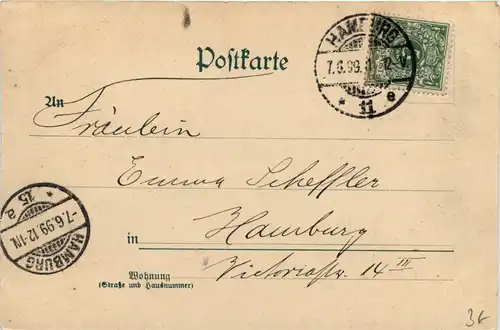 Postkarte
HAMBURG
7.6.99. 11-12 V
* 11 e
An
Fräulein
Emma Scheffler
in Hamburg
Wohnung Victoriastr. 14 III
(Straße und Hausnummer)
* 15 a
-7.6.99.12-1N.
HAMBURG
3k